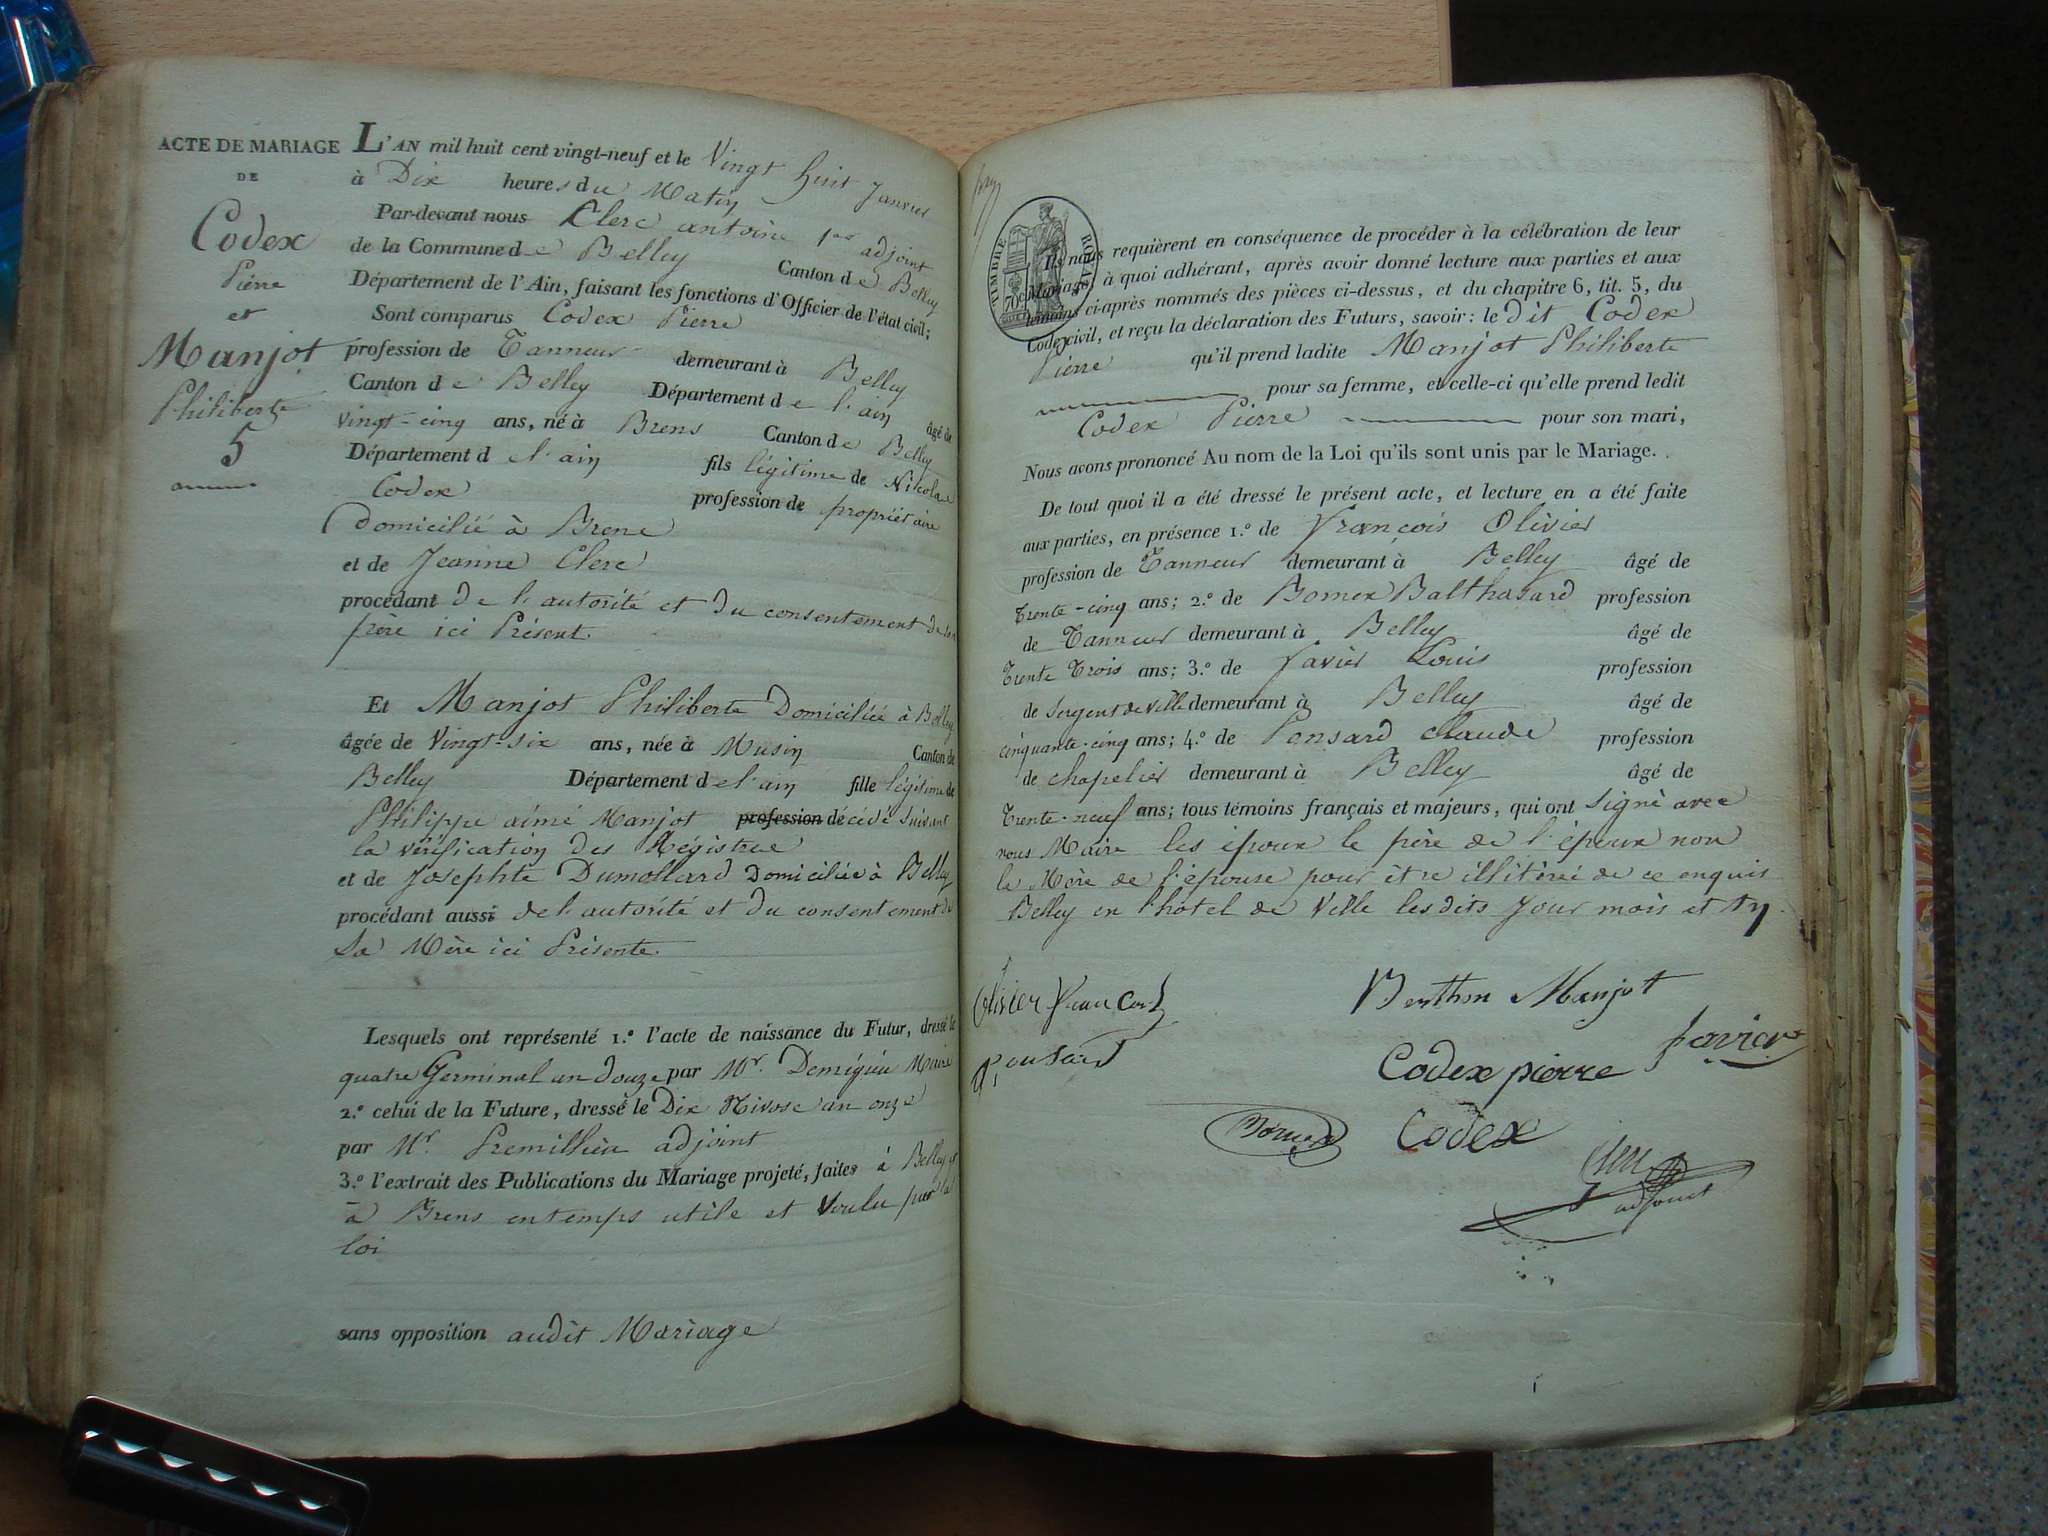 ACTE DE MARIAGE
DE
Codex
Pierre
et
Manjot
Philiberte
5
L'AN mil huit cent vingt-neuf et le Vingt huit Janvier
à Dix heures du Matin
Par-devant nous Clerc antoine 1er adjoint
de la Commune de Belley Canton de Belley
Département de l'Ain, faisant les fonctions d'Officier de l'état civil;
Sont comparus Codex Pierre
profession de Tanneur demeurant à Belley
Canton de Belley Département de l'ain âgé de
vingt-cinq ans, né à Brens Canton de Belley
Département d el'ain fils légitime de Nicolas
Codex profession de propriétaire
Domicilié à Brens
et de Jeanne Clerc
procédant de l'autorité et du consentement de son
père ici Présent.
Et Manjot Philiberte Domiciliée à Belley
âgée de Vingt-six ans, née à Musin Canton de
Belley Département d el'ain fille légitime de
Philippe aimé Manjot profession décédé Suivant
la vérification des Régistres
et de Josephte Dumollard Domiciliée à Belley
procédant aussi de l'autorité et du consentement de
Sa Mère ici Présente.
Lesquels ont représenté 1.º l'acte de naissance du Futur, dressé le
quatre Germinal an douze par Mr. Maire
2.º celui de la Future, dressé le Dix Nivose an onze
par Mr. Premillieu adjoint
3.º l'extrait des Publications du Mariage projeté, faites à Belley et
à Brens en temps utile et voulu par la
loi
sans opposition audit Mariage
TIMBRE ROYAL
70c
Ils nous requièrent en conséquence de procéder à la célébration de leur
Mariage; à quoi adhérant, après avoir donné lecture aux parties et aux
témoins ci-après nommés des pièces ci-dessus, et du chapitre 6, tit. 5, du
Code civil, et reçu la déclaration des Futurs, savoir: le dit Codex
Pierre qu'il prend ladite Manjot Philiberte
pour sa femme, et celle-ci qu'elle prend ledit
Codex Pierre pour son mari,
Nous avons prononcé Au nom de la Loi qu'ils sont unis par le Mariage.
De tout quoi il a été dressé le présent acte, et lecture en a été faite
aux parties, en présence 1.º de François Olivier
profession de Tanneur demeurant à Belley âgé de
Trente-cinq ans; 2.º de Bornex Balthasard profession
de Tanneur demeurant à Belley âgé de
Trente Trois ans; 3.º de Favier Louis profession
de Sergent de ville demeurant à Belley âgé de
cinquante-cinq ans; 4.º de Ponsard Claude profession
de chapelier demeurant à Belley âgé de
Trente-neuf ans; tous témoins français et majeurs, qui ont signé avec
nous Maire les époux le père de l'époux non
la Mère de l'épouse pour être illitérée de ce enquis
Belley en l'hotel de Ville lesdits Jour mois et an
Olivier
Berthon Manjot
Favier
Ponsard
Codex pierre
Bornex
Codex
Clerc
adjoint